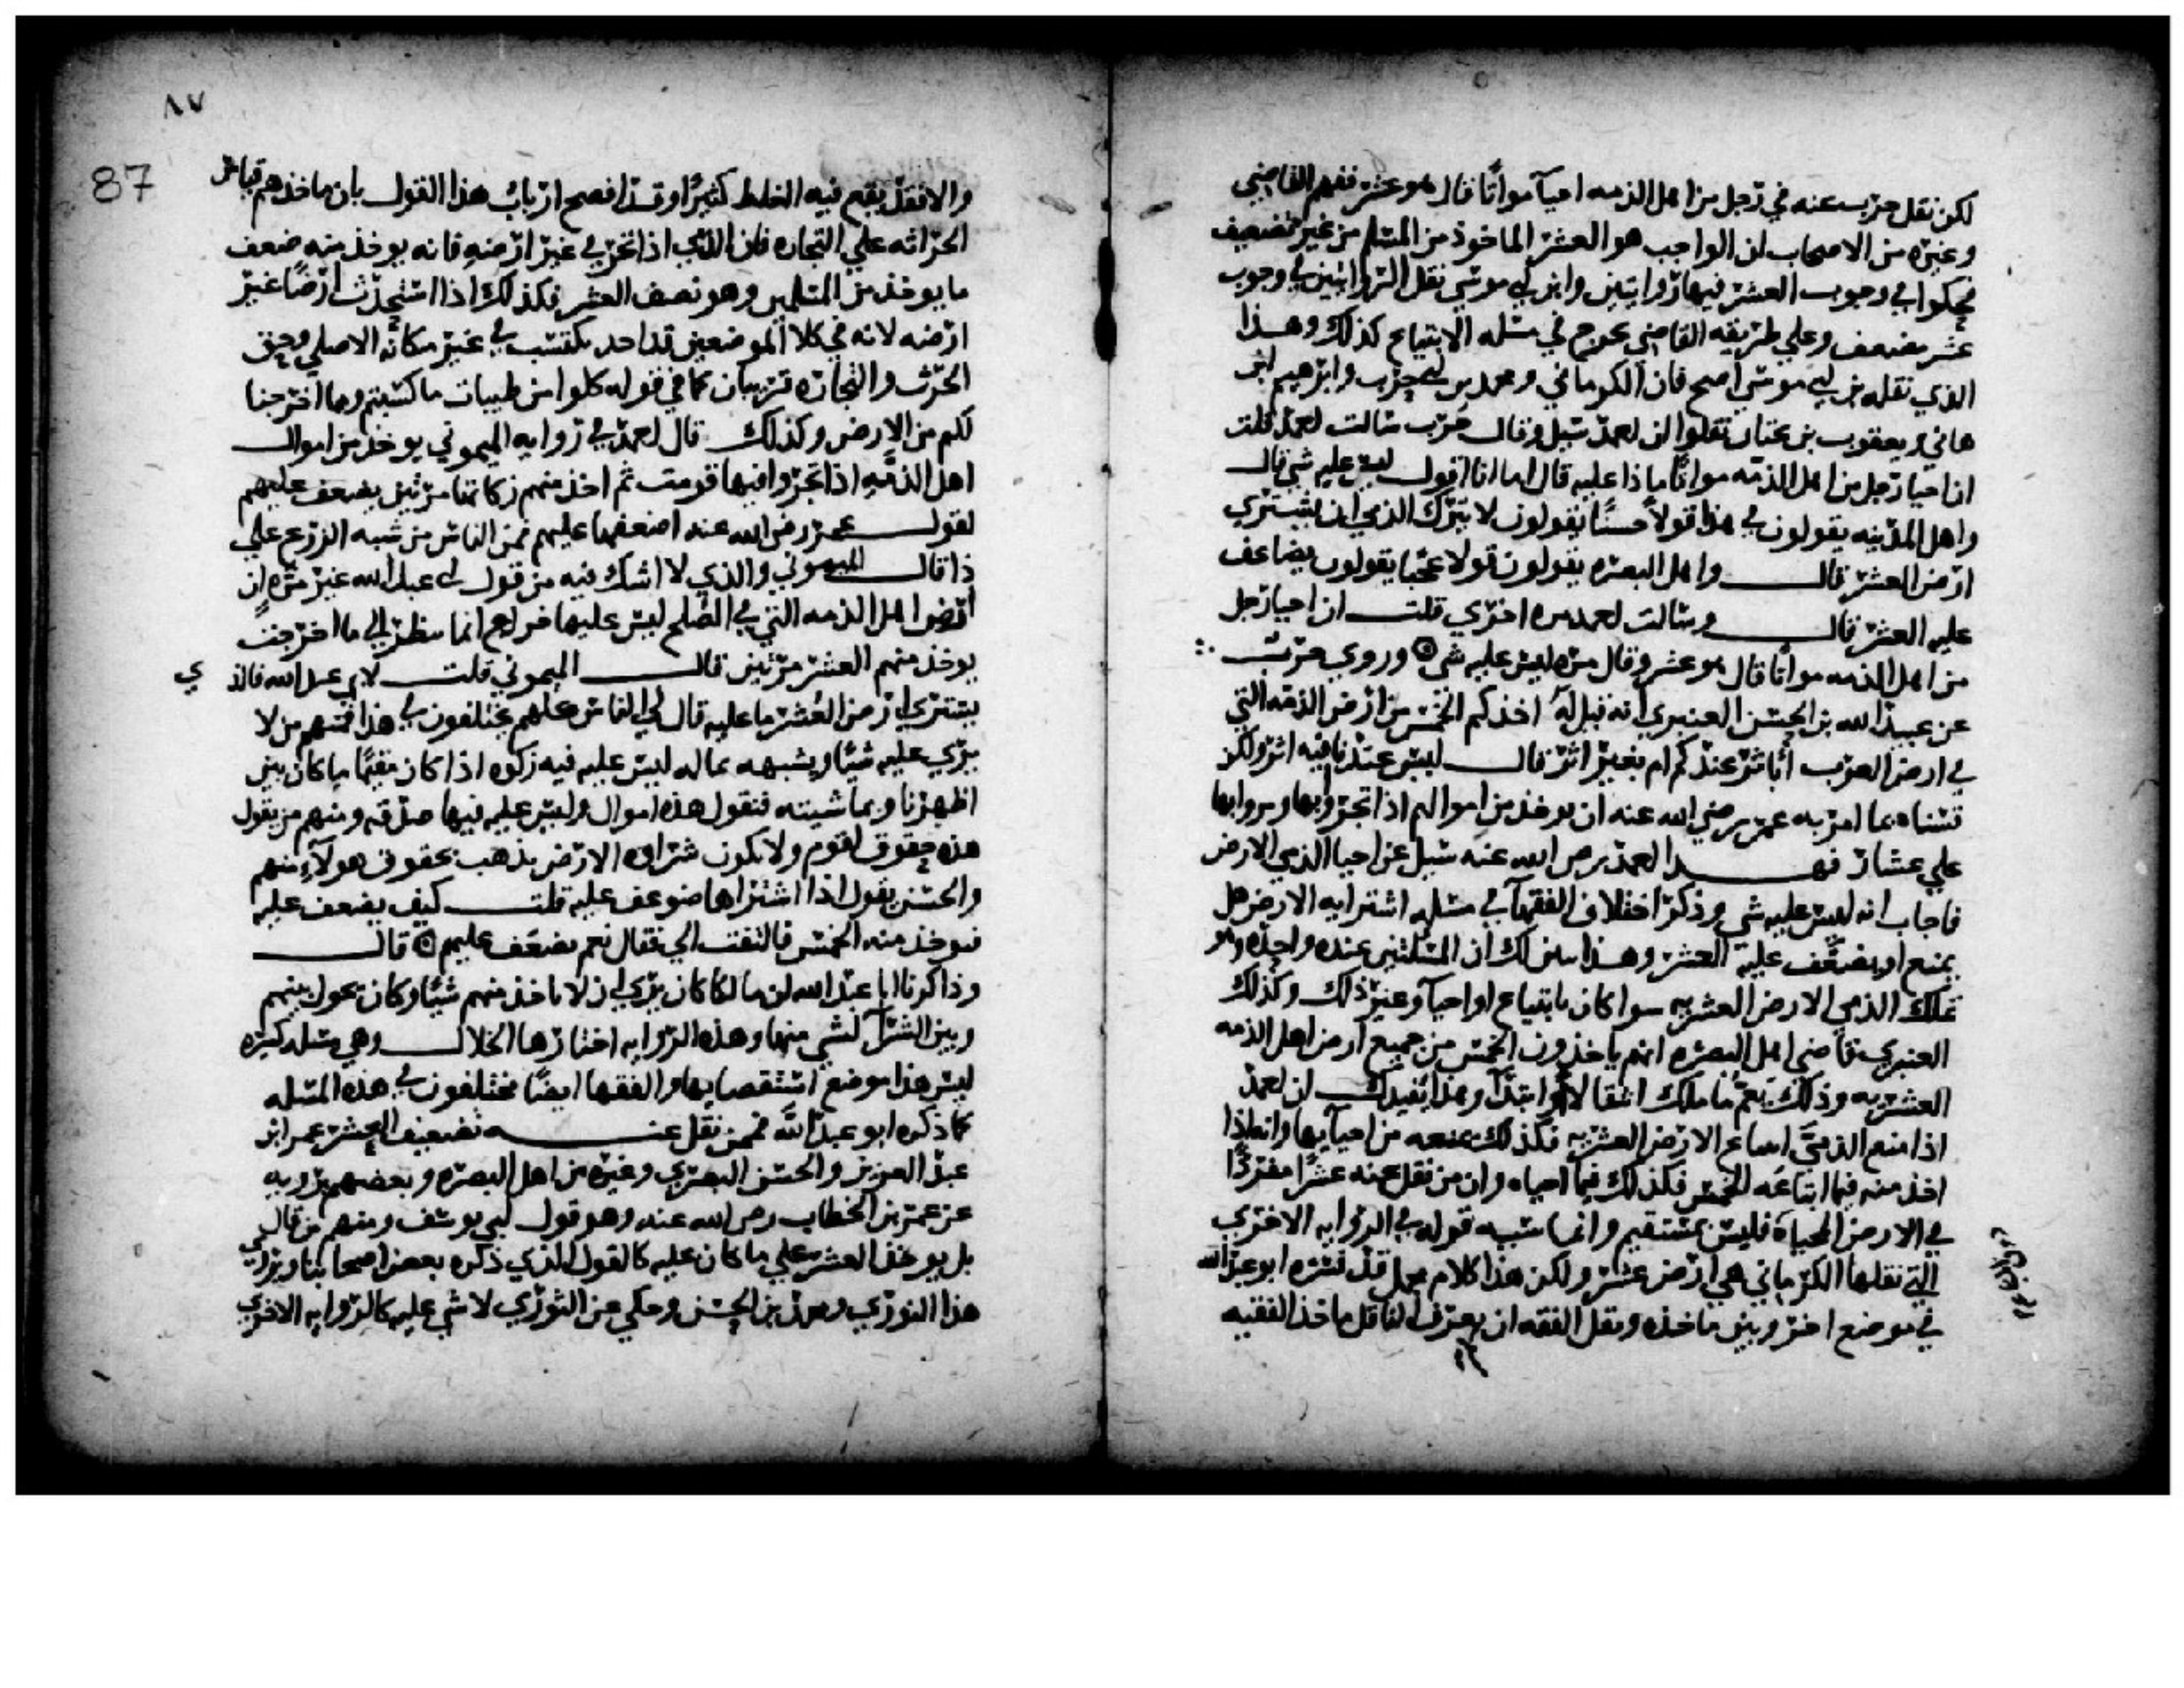 لكن نقل حرب عنه في رجل من اهل الذمه احيا مواتا قال هو عشر ففهم القاضي
وغيره من الاصحاب ان الواجب هو العشر الماخوذ من المسلم من غير تضعيف
فحكوا في وجوب العشر فيها روايتين وابن ابي موسي نقل الروايتين في وجوب
عشر مضعف وعلي طريقه القاضي يخرج في مسله الابتياع كذلك وهذا
الذي نقله بن ابي موسي اصح فان الكرماني ومحمد بن ابي حرب وابرهيم ابن
هاني ويعقوب بن بختان نقلوا ان احمد سيل وقال حرب سالت احمد قلت
ان احيا رجل من اهل الذمه مواتا ماذا عليه قال اما انا اقول ليس عليه شي قال
واهل المدينه يقولون في هذا قولا حسنا يقولون لا يترك الذمي ان يشتري
ارض العشر قال واهل البصره يقولون قولا عجبا يقولون يضاعف
عليه العشر قال وسالت احمد مره اخري قلت ان احيا رجل
من اهل الذمه مواتا قال هو عشر وقال مره ليس عليه شي وروي حرب
عن عبيد الله بن الحسن العنبري انه قيل له اخذكم الخمس من ارض الذمه التي
في ارض العرب أباثر عندكم ام بغير اثر قال ليس عندنا فيه اثر ولكن
قسناه بما امر به عمر رضي الله عنه ان يوخذ من اموالهم اذا تجروا بها ومروا بها
علي عشار فهذا احمد رضي الله عنه سيل عن احيا الذمي الارض
فاجاب انه ليس عليه شي وذكر اختلاف الفقها في مسله اشترايه الارض هل
يمنع او يضعف عليه العشر وهذا يبين لك ان المسلتين عنده واحده وهو
تملك الذمي الارض العشريه سوا كان بابتياع او احيا وغير ذلك وكذلك
العنبري قاضي اهل البصره انهم ياخذون الخمس من جميع ارض اهل الذمه
العشريه وذلك يعم ما ملك انتقالا وابتدا وهذا يفيدك ان احمد
اذا منع الذمي ابتياع الارض العشريه فكذلك يمنعه من احيايها وانه اذا
اخذ منه فيما ابتاعه الخمس فكذلك فيما احياه وان من نقل عنه عشرا مفردا
في الارض المحياة فليس بمستقيم وانما سببه قوله في الروايه الاخري
التي نقلها الكرماني هي ارض عشر ولكن هذا كلام مجمل قد فسره ابو عبد الله
في موضع اخر وبين ماخذه ونقل الفقه ان لم يعرف الناقل ماخذ الفقيه
٨٧
87
والا فقد يقع فيه الغلط كثيرا وقد افصح ارباب هذا القول بان ماخذهم قياس
الحراثه علي التجاره فان الذمي اذا تجر في غير ارضه فانه يوخذ منه ضعف
ما يوخذ من المسلمين وهو نصف العشر فكذلك اذا استحدث ارضا غير
ارضه لانه في كلا الموضعين قد اخذ يكتسب في غير مكانه الاصلي وحق
الحرث والتجاره قرينان كما في قوله كلوا من طيبات ما كسبتم ومما اخرجنا
لكم من الارض وكذلك قال احمد في روايه الميموني يوخذ من اموال
اهل الذمه اذا تجروا فيها قومت ثم اخذ منهم زكاتها مرتين يضعف عليهم
لقول عمر رضي الله عنه اضعفها عليهم فمن الناس من شبه الزرع علي
ذا قال الميموني والذي لا اشك فيه من قول ابي عبد الله غير مره ان
ارض اهل الذمه التي في الصلح ليس عليها خراج انما ينظر الي ما اخرجت
يوخذ منهم العشر مرتين قال الميموني قلت لابي عبد الله فالذي
يشتري ارض العشر ما عليه قال لي الناس كلهم يختلفون في هذا فمنهم من لا
يري عليه شيا ويشبهه بماله ليس عليه فيه زكوه اذا كان مقيما ما كان بين
اظهرنا وبماشيته فنقول هذه اموال وليس عليه فيها صدقه ومنهم من يقول
هذه حقوق لقوم ولا يكون شراوه الارض يذهب بحقوق هولاء منهم
والحسن يقول اذا اشتراها ضوعف عليه قلت كيف يضعف عليه
فيوخذ منه الخمس فالتفت الي فقال نعم يضعف عليهم قال
وذاكرنا ابا عبد الله ان مالكا كان يري ان لا ياخذ منهم شيا وكان يحول بينهم
وبين الشرا لشي منها وهذه الروايه اختارها الخلال وهي مسله كبيره
ليس هذا موضع استقصايها والفقها ايضا مختلفون في هذه المسله
كما ذكره ابو عبد الله فممن نقل عنه تضعيف العشر عمر ابن
عبد العزيز والحسن البصري وغيره من اهل البصره وبعضهم يرويه
عن عمر بن الخطاب رضي الله عنه وهو قول ابي يوسف ومنهم من قال
بل يوخذ العشر علي ما كان عليه كالقول الذي ذكره بعض اصحابنا ويروي
هذا الثوري ومحمد بن الحسن وحكي عن الثوري لا شي عليه كالروايه الاخري